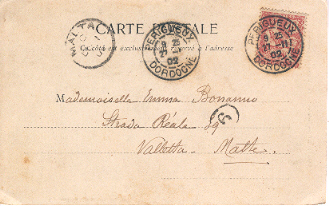 CARTE POSTALE
Ce côté est exclusivement réservé à l'adresse
MALTA
PERIGUEUX
8 25
17 -11
02
DORDOGNE
PERIGUEUX
8 25
17 -11
02
DORDOGNE
Mademoiselle Emma Bonanno
Strada Réale 89
Valletta - Malte.